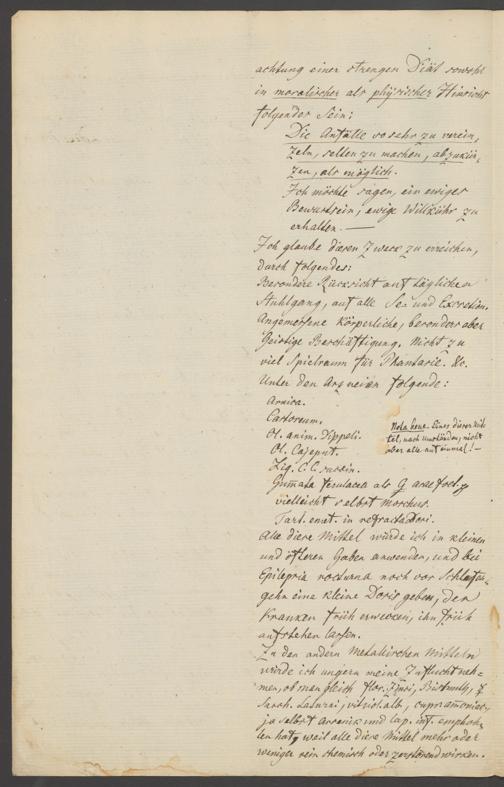 achtung einer strengen Diät sowohl
in moralischer als physischer Hinsicht
folgender Sein:
Die Anfälle so sehr zu verein,
zeln, selten zu machen, abzukür,
zen, als möglich.
Ich möchte sagen, ein ewiges
Bewustsein, ewige Willkühr zu
erhalten. —
Ich glaube diesen Zweck zu erreichen,
durch folgendes:
Besondere Rücksicht auf täglichen
Stuhlgang, auf alle Se= und Excretion.
Angemessene Körperliche, besonders aber
Geistige Beschäftigung. Nicht zu
viel Spielraum für Phantasie. &c.
Unter den Arzneien folgende:
Arnica.
Castoreum.
Ol. anim. Dippeli.
Ol. Cajeput.
Liq. C. C. succin.
Nota bene Eines dieser Mit=
tel, nach Umständen, nicht
aber alle auf einmal! —
Gum̄ata ferulacea als G asae foet.
vielleicht selbst Moschus.
Tart. emet. in refracta Dosi.
Alle diese Mittel würde ich in kleinen
und öfteren Gaben anwenden, und bei
Epilepsia nocturna noch vor Schlafen=
gehn eine kleine Dosis geben, den
Kranken früh erwecken, ihn früh
aufstehen lassen.
Zu den andern Metalischen Mitteln
würde ich ungern meine Zuflucht neh=
men, ob man gleich flor. Zinci, Bismuth,
Sacch. Saturni, vitriol. alb, cupr. am̄oniac,
ja selbst Arsenik und lap. inf. empfoh=
len hat, weil alle diese Mittel mehr oder
weniger rein chemisch oder zerstörend wirken.